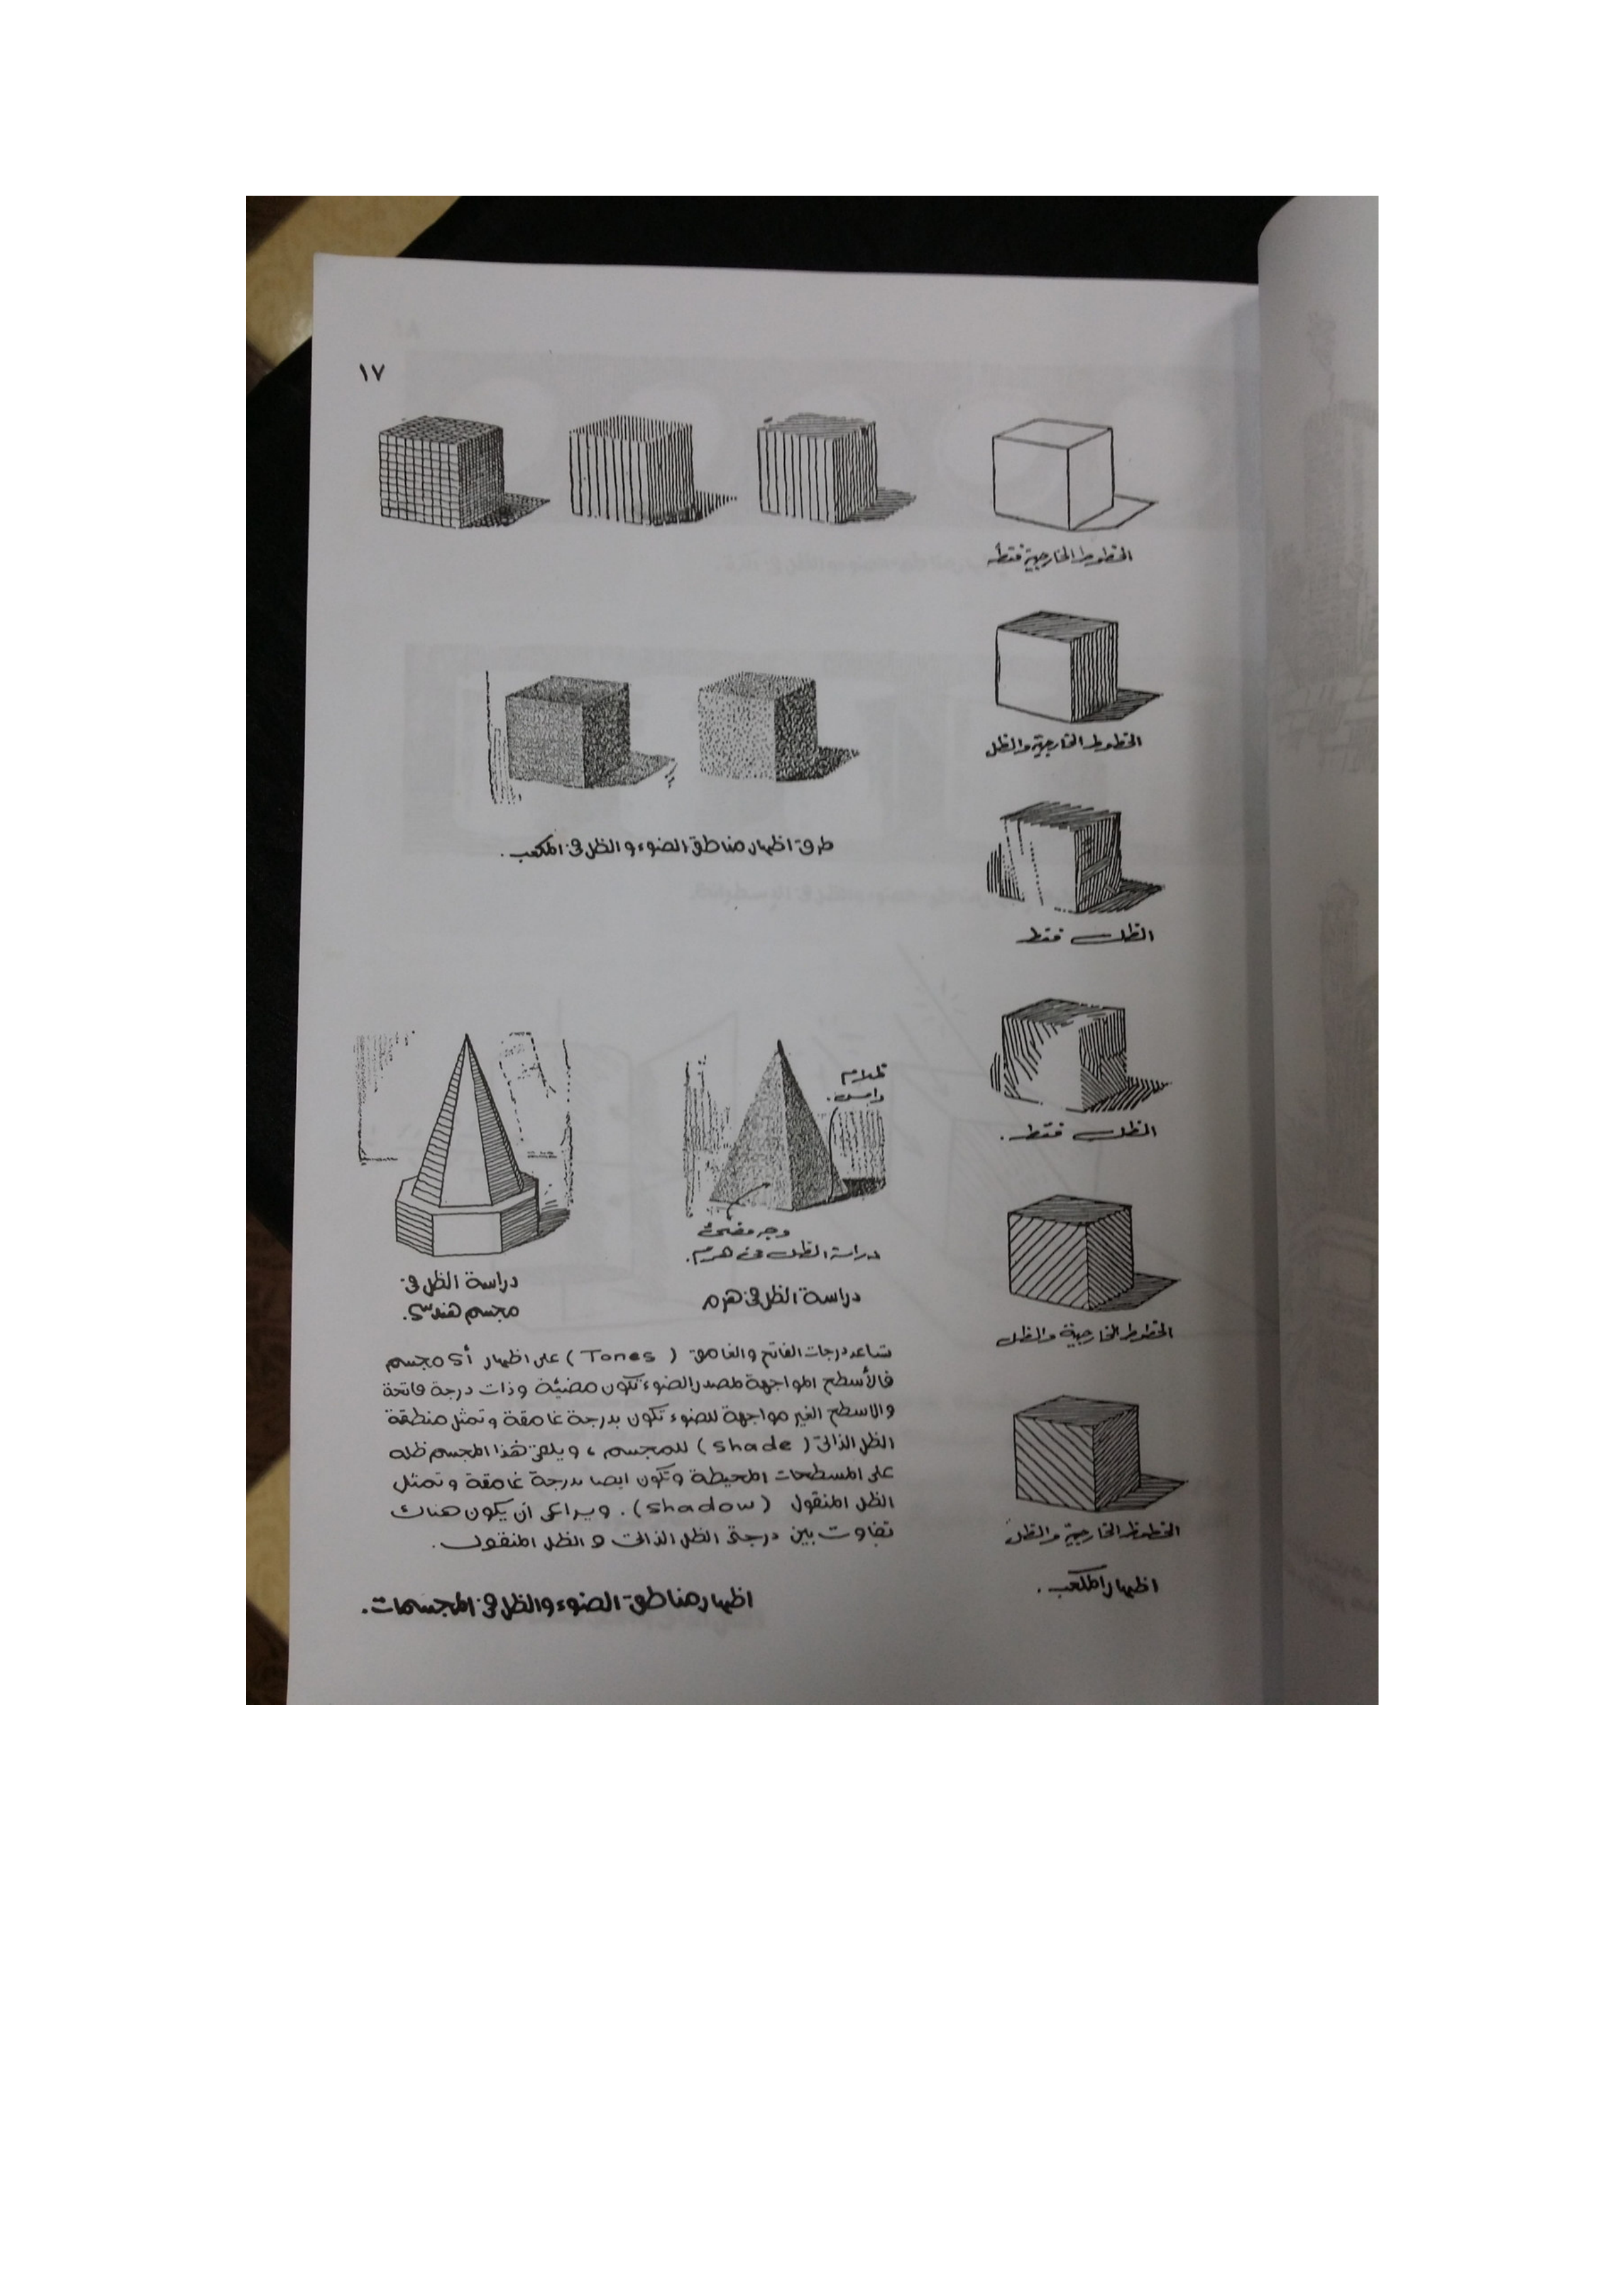 ١٧
الخطوط الخارجية فقط
الخطوط الخارجية والظل
الظل فقط
الظل فقط .
الخطوط الخارجية والظل
الخطوط الخارجية والظل
اظهار المكعب .
طرق اظهار مناطق الضوء والظل فى المكعب .
ظلام
دامس .
وجه مضئ
دراسة الظل فى هرم .
دراسة الظل فى هرم
دراسة الظل فى
مجسم هندسى .
تساعد درجات الفاتح والغامق ( Tones ) على اظهار أى مجسم
فالأسطح المواجهة لمصدر الضوء تكون مضيئة وذات درجة فاتحة
والاسطح الغير مواجهة للضوء تكون بدرجة غامقة وتمثل منطقة
الظل الذاتى ( shade ) للمجسم ، ويلقى هذا المجسم ظله
على المسطحات المحيطة وتكون ايضا بدرجة غامقة وتمثل
الظل المنقول ( shadow ) . ويراعى أن يكون هناك
تفاوت بين درجتى الظل الذاتى و الظل المنقول .
اظهار مناطق الضوء والظل فى المجسمات .